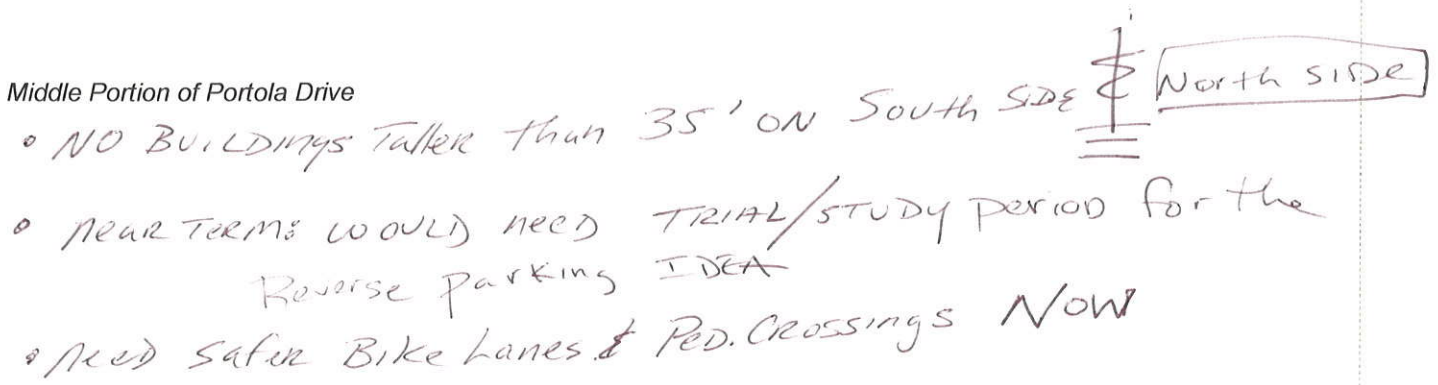 Middle Portion of Portola Drive
• NO BUILDINgs Taller than 35' ON South SIDE & North SIDE
• near Term: WOULD neeD TRIAL/STUDY perioD for the
Reverse parking IDEA
• NeeD Safer Bike Lanes & PeD. CRossings NOW